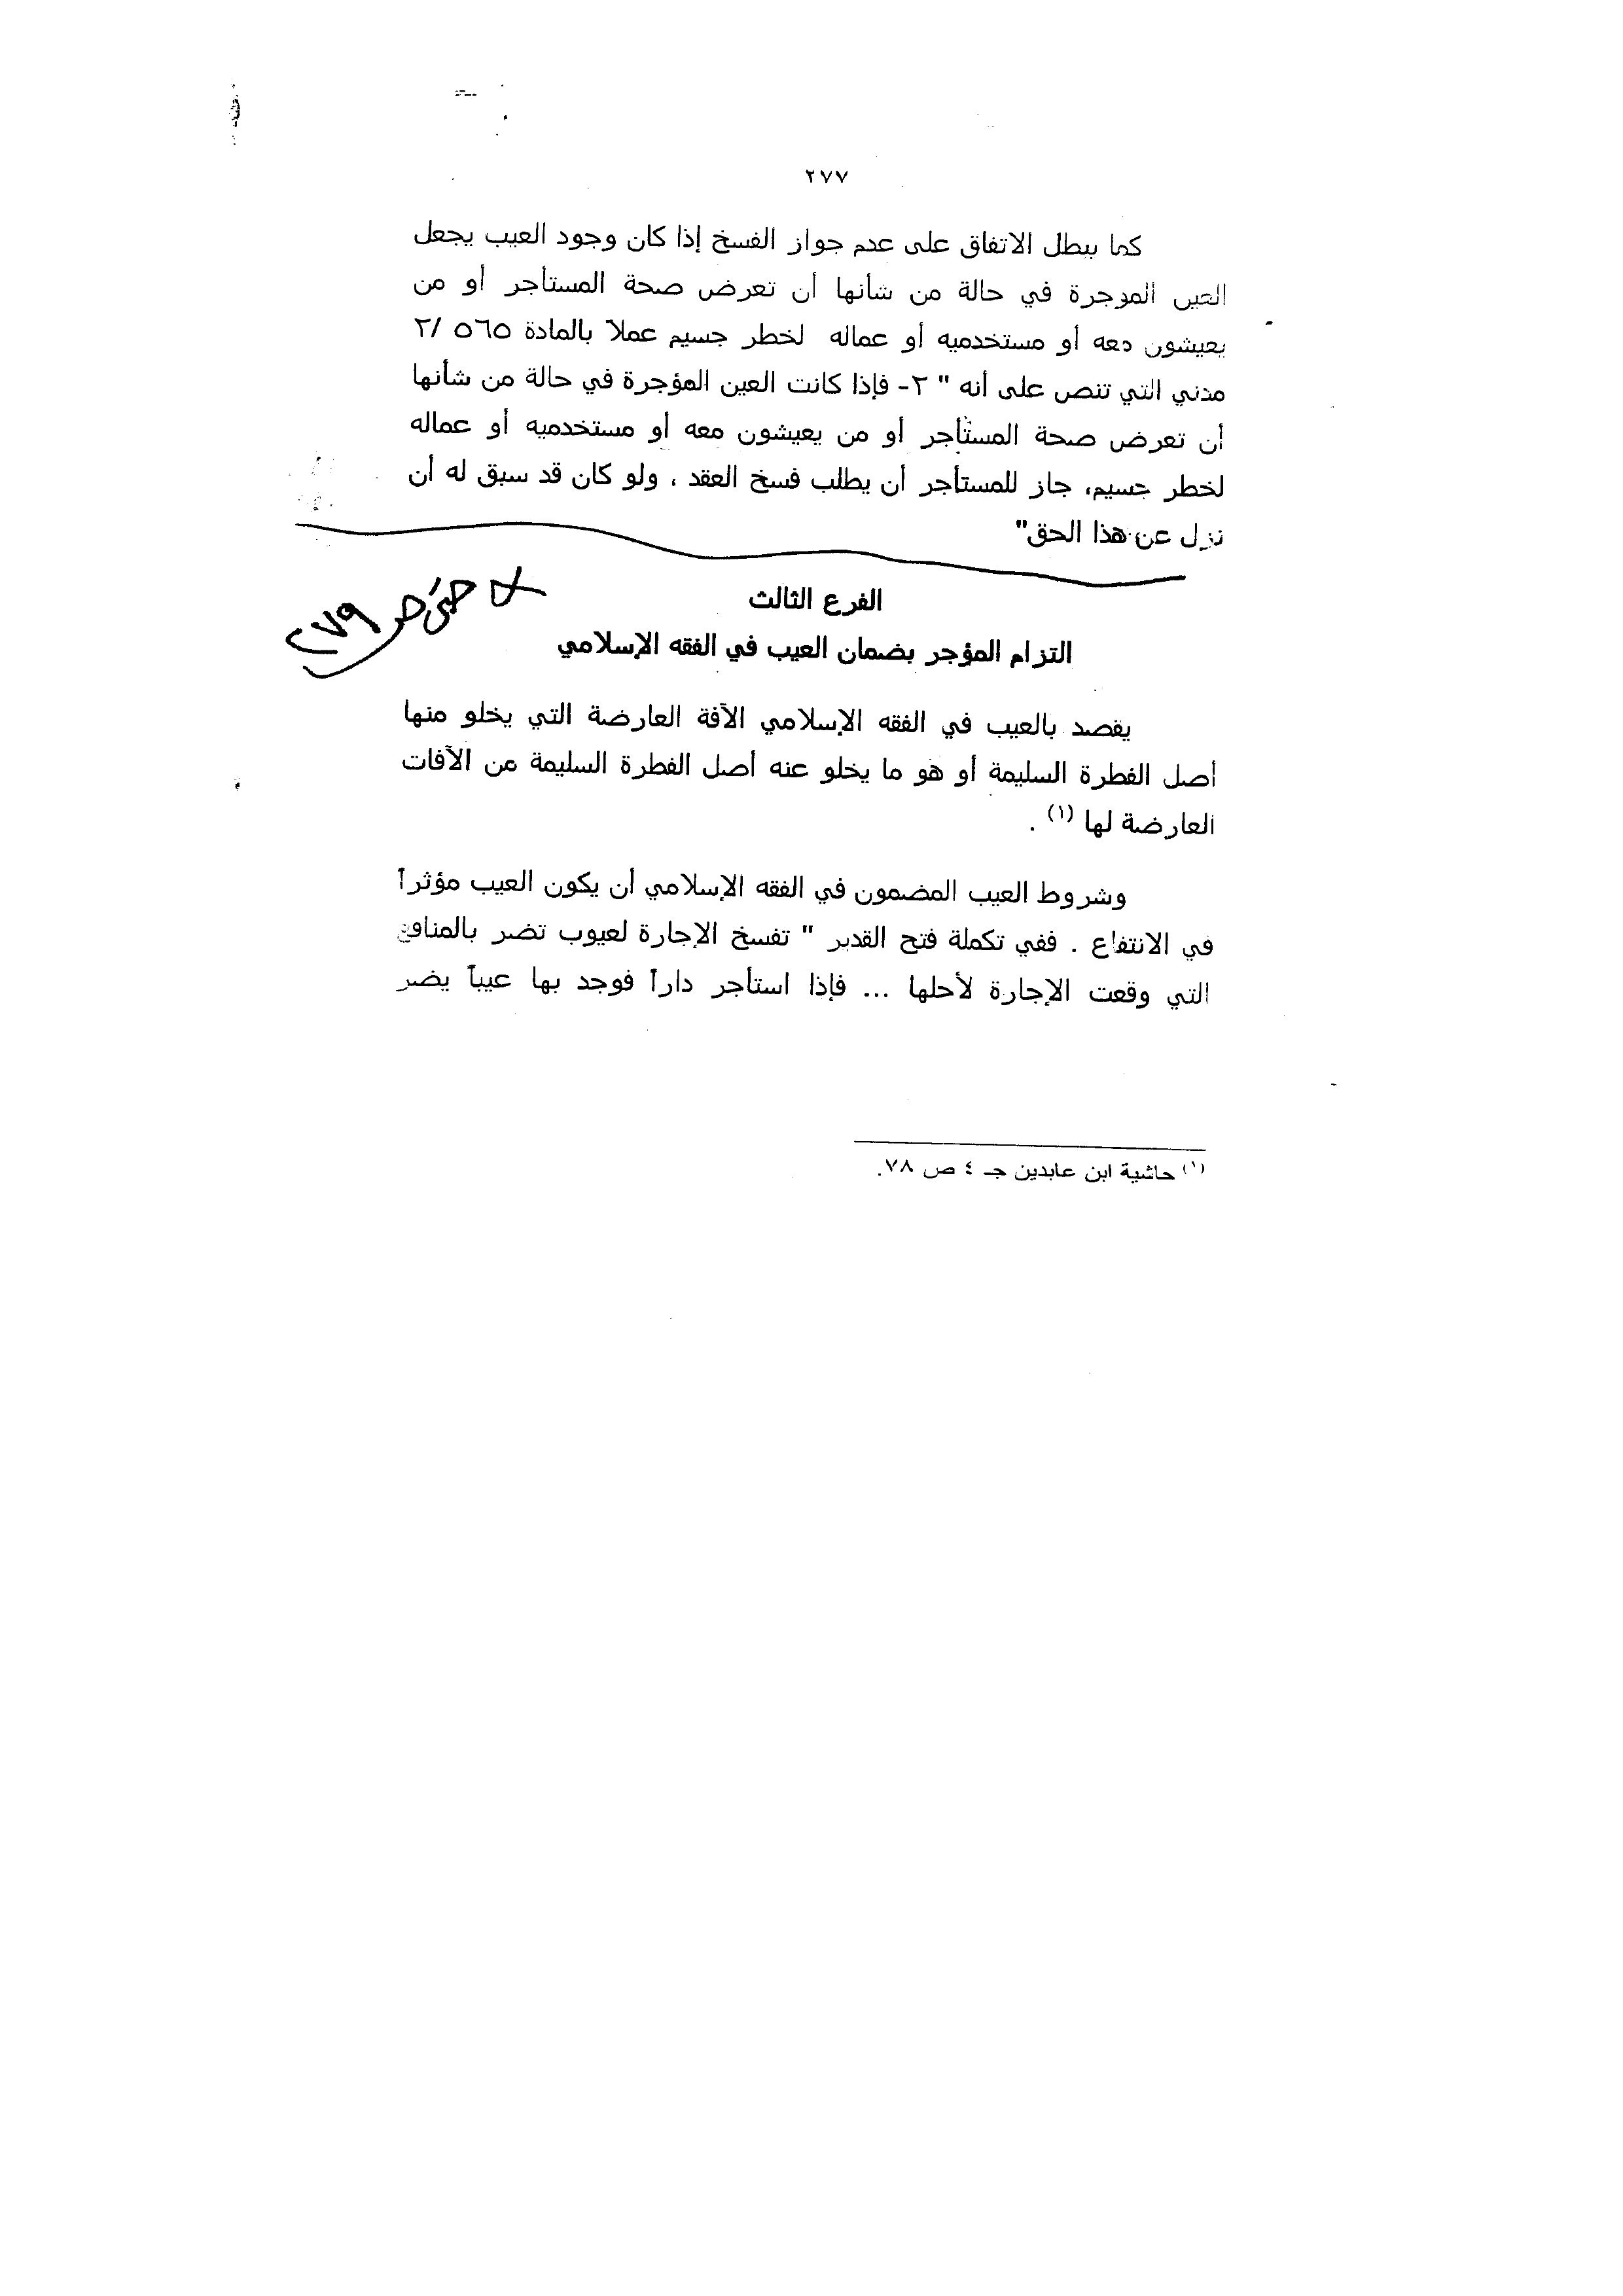 ٢٧٧
كما يبطل الاتفاق على عدم جواز الفسخ إذا كان وجود العيب يجعل
العين المؤجرة في حالة من شأنها أن تعرض صحة المستأجر أو من
يعيشون معه أو مستخدميه أو عماله لخطر جسيم عملا بالمادة ٥٦٥ /٢
مدني التي تنص على أنه " ٢- فإذا كانت العين المؤجرة في حالة من شأنها
أن تعرض صحة المستأجر أو من يعيشون معه أو مستخدميه أو عماله
لخطر جسيم، جاز للمستأجر أن يطلب فسخ العقد ، ولو كان قد سبق له أن
نزل عن هذا الحق"
الفرع الثالث
لا حتى ص ٢٧٩
التزام المؤجر بضمان العيب في الفقه الإسلامي
يقصد بالعيب في الفقه الإسلامي الآفة العارضة التي يخلو منها
أصل الفطرة السليمة أو هو ما يخلو عنه أصل الفطرة السليمة من الآفات
العارضة لها (١) .
وشروط العيب المضمون في الفقه الإسلامي أن يكون العيب مؤثراً
في الانتفاع . ففي تكملة فتح القدير " تفسخ الإجارة لعيوب تضر بالمنافع
التي وقعت الإجارة لأحلها ... فإذا استأجر داراً فوجد بها عيباً يضر
(١) حاشية ابن عابدين جـ ٤ ص ٧٨.